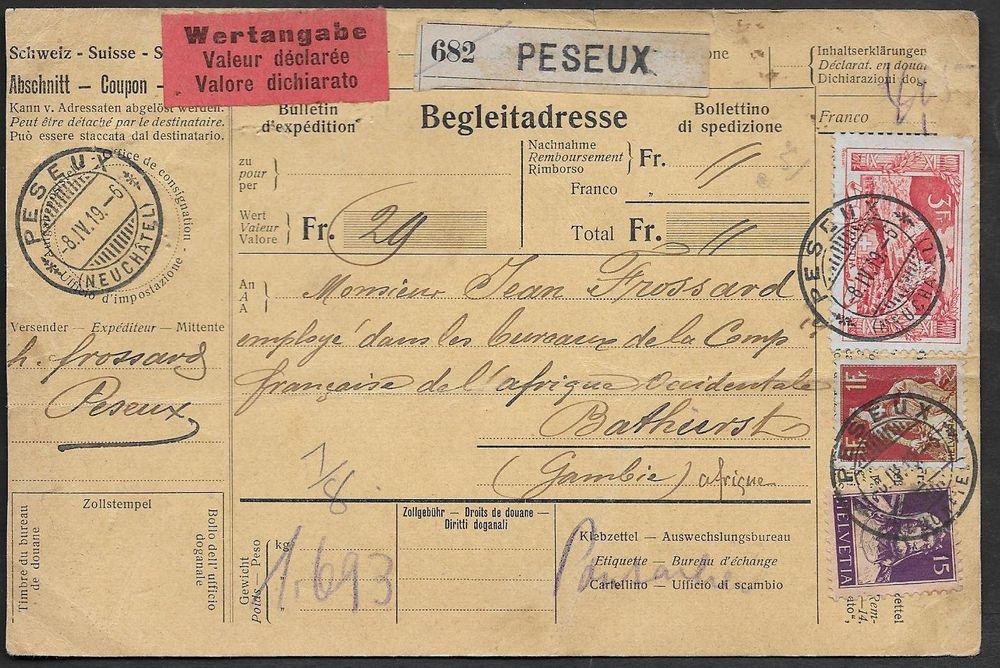 Schweiz - Suisse - S
Wertangabe
Valeur déclarée
Valore dichiarato
682 PESEUX
Abschnitt — Coupon -
Kann v. Adressaten abgelöst werden.
Peut être détaché par le destinataire.
Può essere staccata dal destinatario.
Bulletin
d'expédition
Begleitadresse
Bollettino
di spedizione
Inhaltserklärungen
Déclarat. en doua
Dichiarazioni dog
Franco
zu
pour
per
Nachnahme
Remboursement
Rimborso
Fr. 11
Franco
Wert
Valeur
Valore
Fr. 29
Total Fr. 11
Office de consignation
Ufficio d'impostazione
PESEUX
-8.IV.19.-6
(NEUCHÂTEL)
An
A
A
Monsieur Jean Frossard
employé dans les bureaux de la Comp
française de l'afrique Occidentale
Bathurst
(Gambie) afrique
Versender — Expéditeur — Mittente
h. frossard
Peseux
3Fr
PESEUX
1Fr.
PESEUX
HELVETIA 15
1/8
Zollstempel
Timbre du bureau
de douane
Bollo dell' ufficio
doganale
Gewicht
Poids — Peso
kg
1.693
Zollgebühr — Droits de douane —
Diritti doganali
Klebzettel — Auswechslungsbureau
Etiquette — Bureau d'échange
Cartellino — Ufficio di scambio